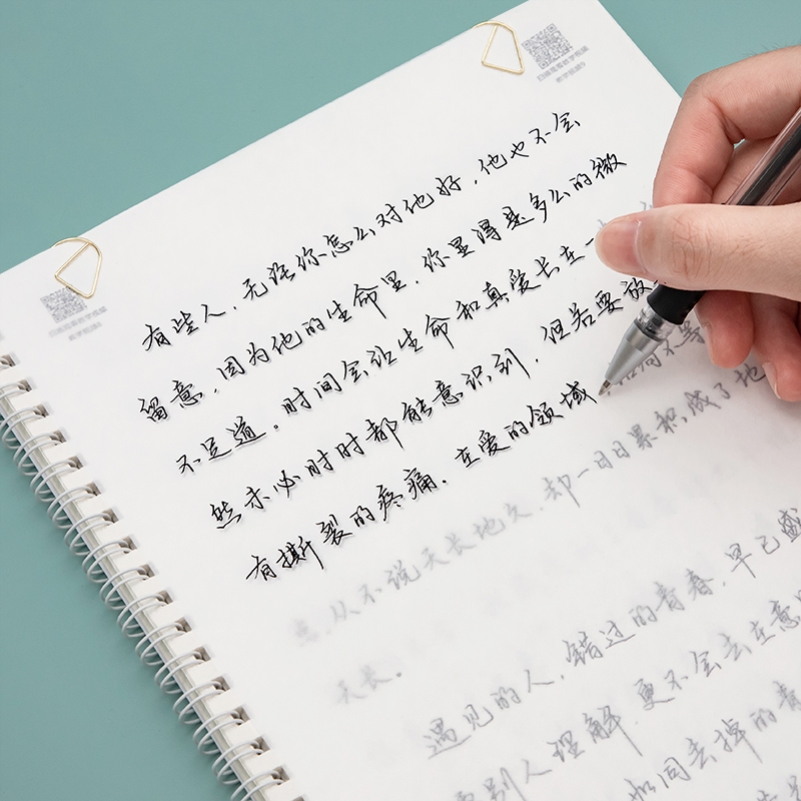 有些人，无论你怎么对他好，他也不会
留意，因为他的生命里，你显得是多么的微
不足道。时间会让生命和真爱长在一
然未必时时都能意识到，但若要放
有撕裂的疼痛。在爱的领域
从不说天长地久，却一日日累积成了地
天长。
遇见的人，错过的青春，早已盛
别人理解，更不会去在意
如同丢掉的青